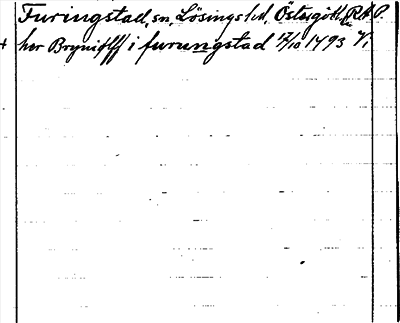 Furingstad, sn, Lösings hd, Östergötl. RAP.
+ her Bryniolff i furungstad 17/10 1493 V.